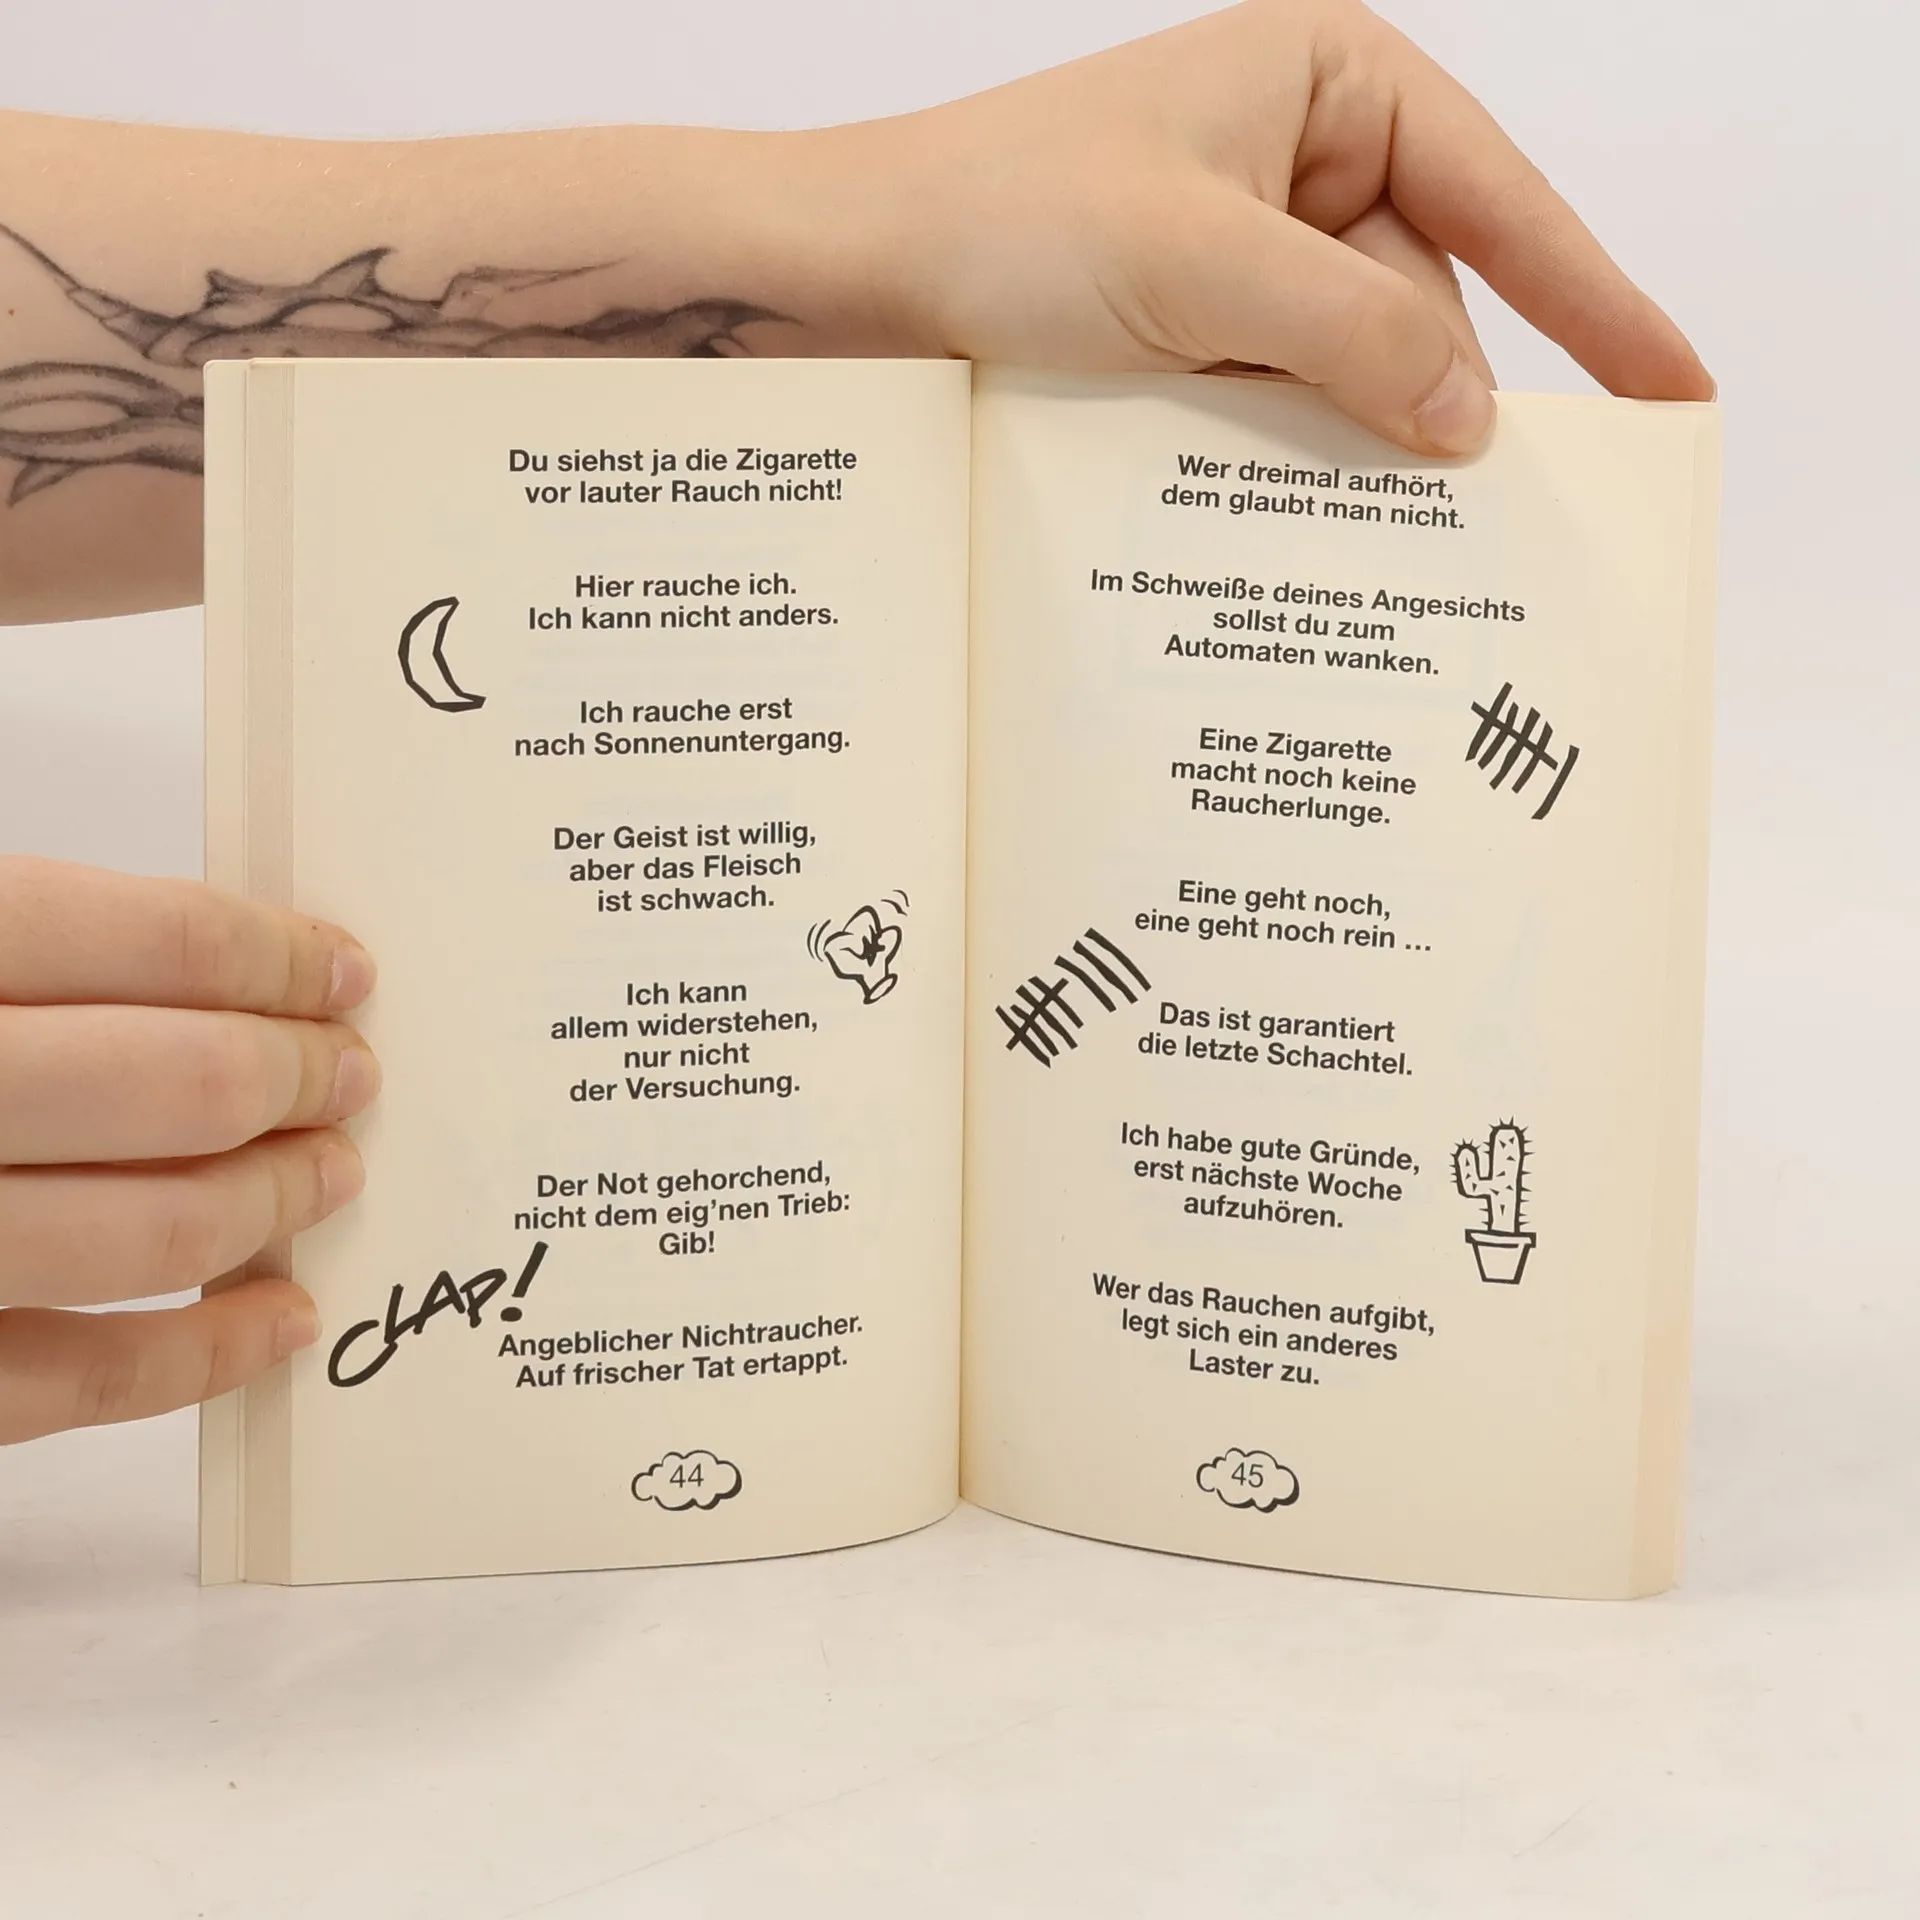 Du siehst ja die Zigarette
vor lauter Rauch nicht!
Hier rauche ich.
Ich kann nicht anders.
Ich rauche erst
nach Sonnenuntergang.
Der Geist ist willig,
aber das Fleisch
ist schwach.
Ich kann
allem widerstehen,
nur nicht
der Versuchung.
Der Not gehorchend,
nicht dem eig’nen Trieb:
Gib!
CLAP!
Angeblicher Nichtraucher.
Auf frischer Tat ertappt.
44
Wer dreimal aufhört,
dem glaubt man nicht.
Im Schweiße deines Angesichts
sollst du zum
Automaten wanken.
Eine Zigarette
macht noch keine
Raucherlunge.
Eine geht noch,
eine geht noch rein ...
Das ist garantiert
die letzte Schachtel.
Ich habe gute Gründe,
erst nächste Woche
aufzuhören.
Wer das Rauchen aufgibt,
legt sich ein anderes
Laster zu.
45